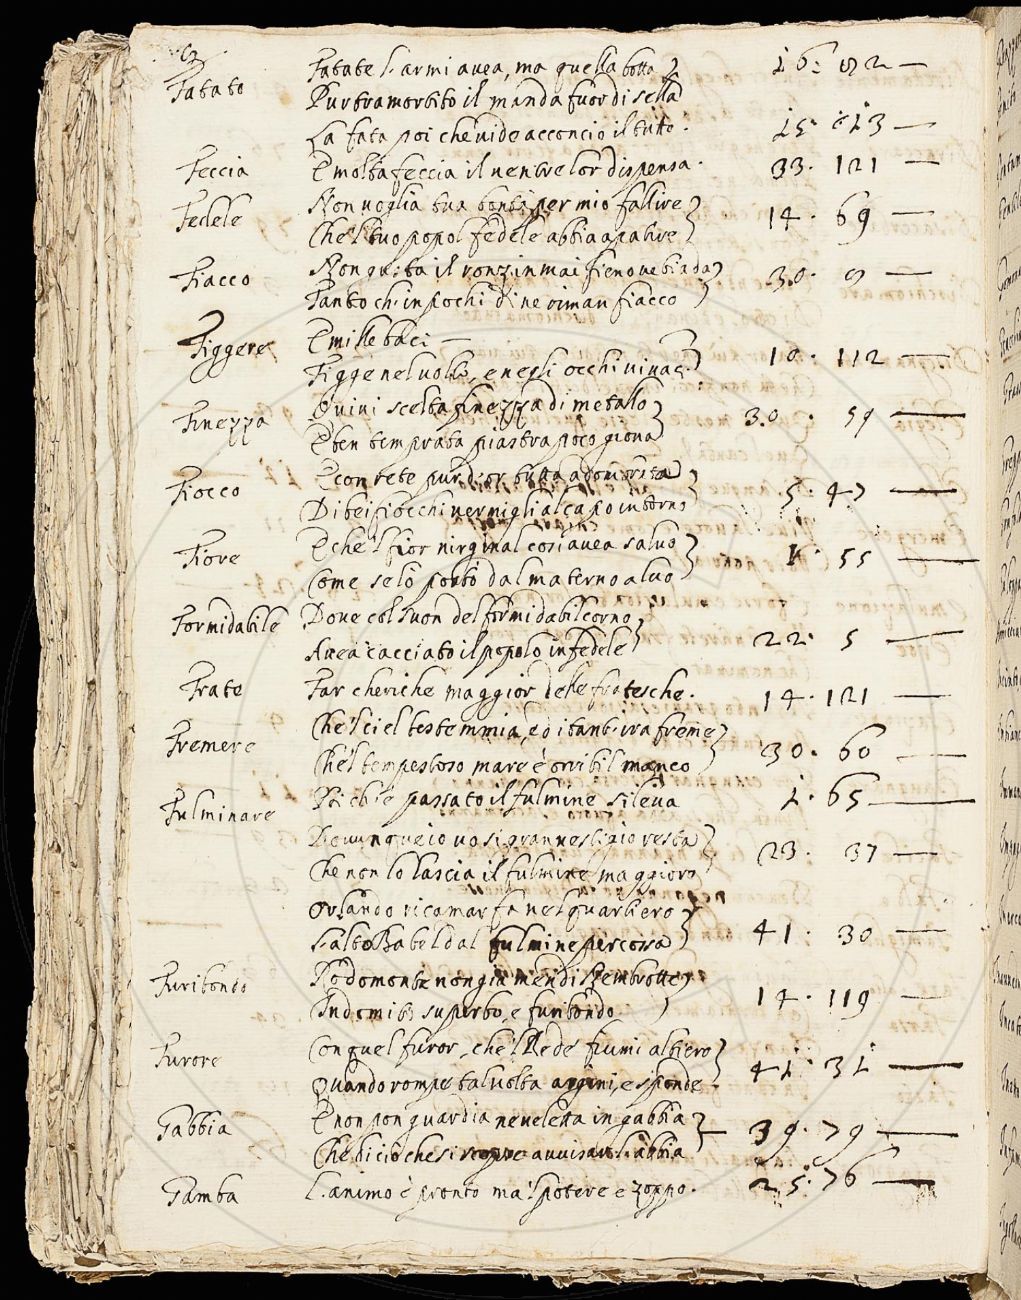 Fatato Fatate l'armi avea, ma quella botta } 16: 82 —
Pur tramortito il manda fuor di sella
La fata poi che vide acconcio il tutto. 15 · 13 —
Feccia E molta feccia il ventre lor dispensa. 33 · 121 —
Fedele Non voglia tua bontà per mio fallire } 14 · 69 —
Che'l tuo popol fedele abbia a patire
Fiacco Non gusta il ronzin mai fieno ne biada } 30 · 9 —
Tanto ch'in pochi dì ne riman fiacco
Figgere E mille baci — } 10 · 112 —
Figge nel volto, e negli occhi vivaci.
Finezza Quivi scelta finezza di metallo } 30 · 59 —
E ben temprata piastra poco giova
Fiocco E con rete pur d'or tutta adombrata } 5 · 47 —
Di bei fiocchi vermigli al capo intorno
Fiore E che'l fior virginal così avea salvo } 1 · 55 —
Come se lo portò dal materno alvo
Formidabile Dove col suon del formidabil corno } 22 · 5 —
Avea cacciato il popolo infedele
Frate Far cheriche maggior delle fratesche. 14 · 121 —
Fremere Che'l ciel bestemmia, e di tant'ira freme } 30 · 60 —
Che'l tempestoso mare è orribil manco
Fulminare Poi ch'è passato il fulmine si leva 1 · 65 —
Dovunque io vo sì gran vestigio resta } 23 · 37 —
Che non lo lascia il fulmine maggiore
Orlando ricamar fa nel quartiero } 41 · 30 —
L'alto Babel dal fulmine percosso
Furibondo Rodomonte non già men di Nembrotte } 14 · 119 —
Indomito superbo, e furibondo
Furore Con quel furor, che'l Re de' fiumi altiero } 41 · 31 —
Quando rompe talvolta argini, e sponde
Gabbia E non pon guardia ne veletta in gabbia } 39 · 79 —
Che di ciò che si scopre avvisar l'abbia
Gamba L'animo è pronto ma'l potere e zoppo. 25 · 76 —